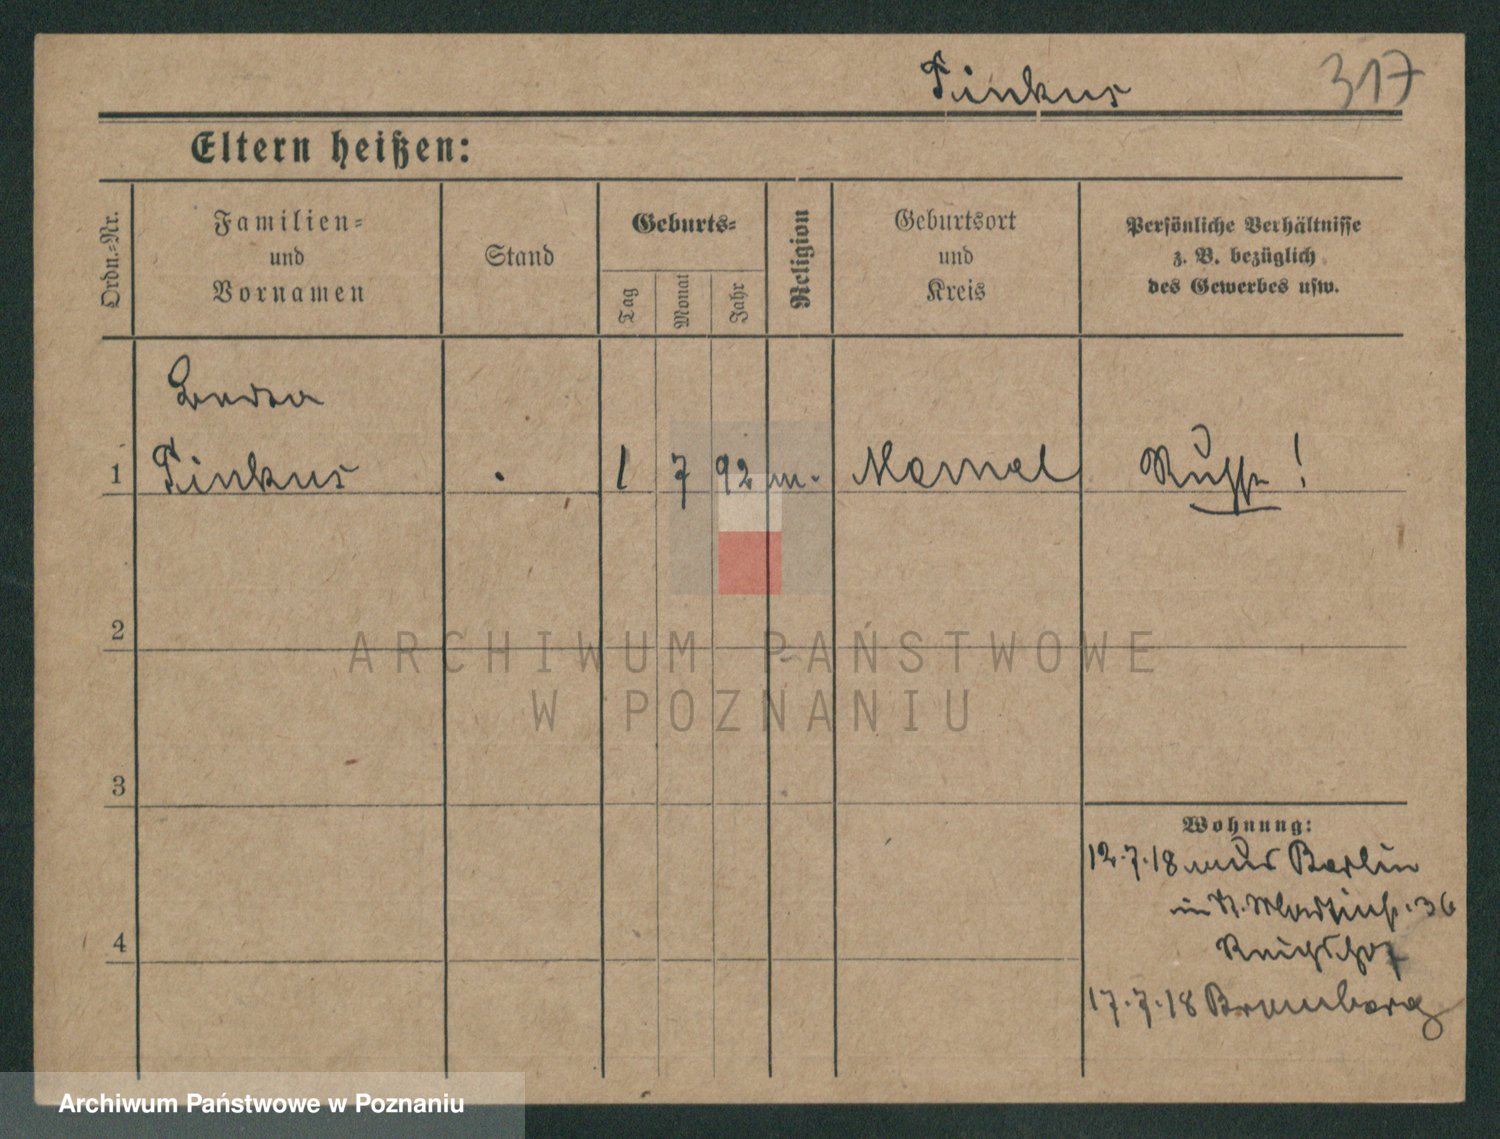 Pinkus 317
Eltern heißen:
Ordn.-Nr.
Familien-
und
Vornamen
Stand
Geburts-
Tag
Monat
Jahr
Religion
Geburtsort
und
Kreis
Persönliche Verhältnisse
z. B. bezüglich
des Gewerbes usw.
1
Pinkus . 1 7 92 m. Memel Russe!
2
3
4
Wohnung:
12.7.18 aus Berlin
in St. Martinstr. 36
Reichshof
17.7.18 Bromberg
ARCHIWUM PAŃSTWOWE
W POZNANIU
Archiwum Państwowe w Poznaniu